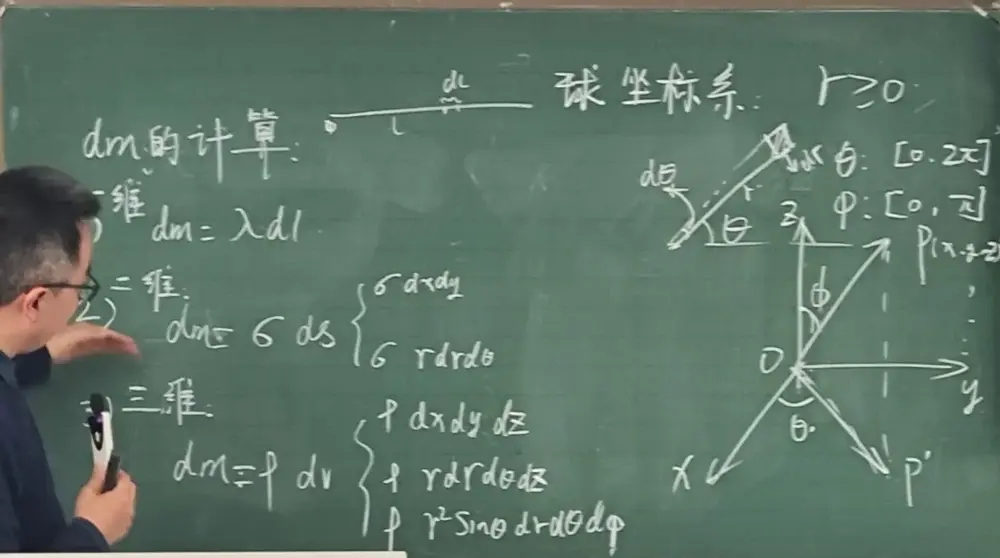 dm的计算:
dl
l
球坐标系: r≥0
θ: [0, 2π]
φ: [0, π]
维
dm = λdl
2) 二维:
dm = σ ds
σ dxdy
σ rdrdθ
三维:
dm = ρ dv
ρ dxdydz
ρ rdrdθdz
ρ r²sinθdrdθdφ
dθ
r
dr
θ
z
P(x,y,z)
φ
O
y
θ
x
P'